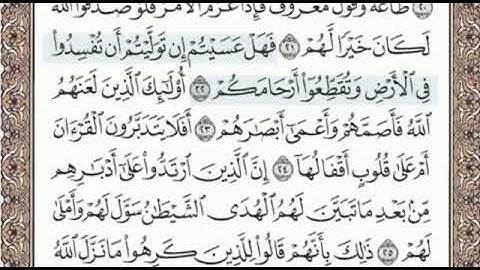 طَاعَةٌ وَقَوْلٌ مَّعْرُوفٌ فَإِذَا عَزَمَ ٱلْأَمْرُ فَلَوْ صَدَقُوا۟ ٱللَّهَ
لَكَانَ خَيْرًا لَّهُمْ ٢١ فَهَلْ عَسَيْتُمْ إِن تَوَلَّيْتُمْ أَن تُفْسِدُوا۟
فِى ٱلْأَرْضِ وَتُقَطِّعُوٓا۟ أَرْحَامَكُمْ ٢٢ أُو۟لَٰٓئِكَ ٱلَّذِينَ لَعَنَهُمُ
ٱللَّهُ فَأَصَمَّهُمْ وَأَعْمَىٰٓ أَبْصَٰرَهُمْ ٢٣ أَفَلَا يَتَدَبَّرُونَ ٱلْقُرْءَانَ
أَمْ عَلَىٰ قُلُوبٍ أَقْفَالُهَآ ٢٤ إِنَّ ٱلَّذِينَ ٱرْتَدُّوا۟ عَلَىٰٓ أَدْبَٰرِهِم
مِّنۢ بَعْدِ مَا تَبَيَّنَ لَهُمُ ٱلْهُدَى ٱلشَّيْطَٰنُ سَوَّلَ لَهُمْ وَأَمْلَىٰ
لَهُمْ ٢٥ ذَٰلِكَ بِأَنَّهُمْ قَالُوا۟ لِلَّذِينَ كَرِهُوا۟ مَا نَزَّلَ ٱللَّهُ